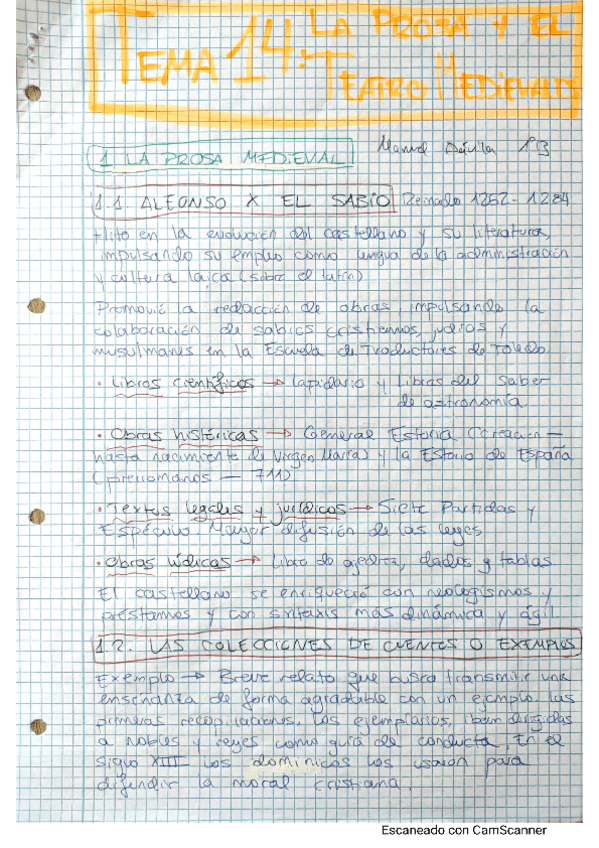 TEMA 14: LA PROSA Y EL
TEATRO MEDIEVALES
1. LA PROSA MEDIEVAL
Manuel Dávila 1ºB
1.1. ALFONSO X EL SABIO Reinado 1252-1284
Hito en la evolución del castellano y su literatura,
impulsando su empleo como lengua de la administración
y cultura laica (sobre el latín).
Promovió la redacción de obras impulsando la
colaboración de sabios cristianos, judíos y
musulmanes en la Escuela de Traductores de Toledo.
· Libros científicos → Lapidario y Libros del saber
de astronomía.
· Obras históricas → General Estoria (creación —
hasta nacimiento de Virgen María) y la Estoria de España
(prerromanos — 711)
· Textos legales y jurídicos → Siete Partidas y
Espéculo. Mayor difusión de las leyes
· Obras lúdicas → Libro de ajedrez, dados y tablas
El castellano se enriqueció con neologismos y
préstamos y con sintaxis más dinámica y ágil
1.2. LAS COLECCIONES DE CUENTOS O EXEMPLOS
Exemplo → Breve relato que busca transmitir una
enseñanza de forma agradable con un ejemplo. Las
primeras recopilaciones, los ejemplarios, iban dirigidas
a nobles y reyes como guía de conducta. En el
siglo XIII los dominicos los usaron para
difundir la moral cristiana.
Escaneado con CamScanner